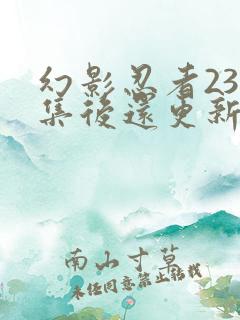 幻影忍者23
集後還更新
南山寸草
未經同意禁止轉載